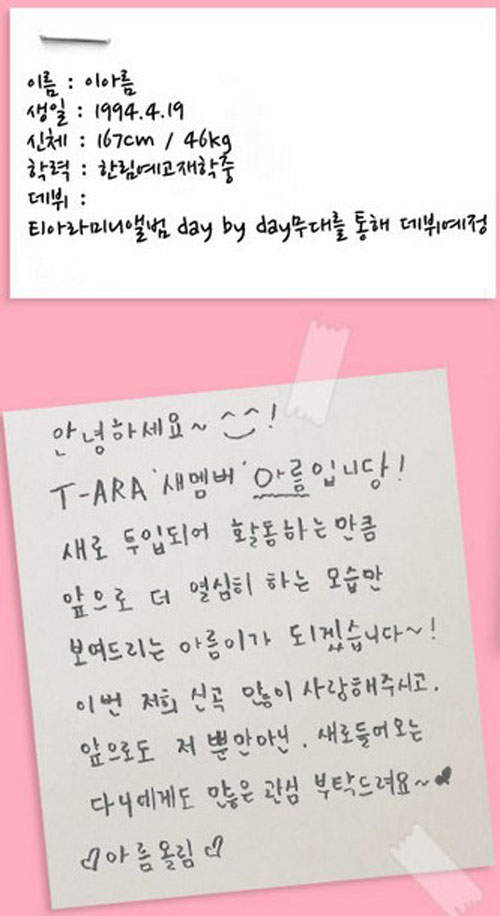 이름 : 이아름
생일 : 1994.4.19
신체 : 167cm / 46kg
학력 : 한림예고재학중
데뷔 :
티아라미니앨범 day by day무대를 통해 데뷔예정
안녕하세요~ ^‿^!
T-ARA '새멤버' 아름입니당!
새로 투입되어 활동하는만큼
앞으로 더 열심히 하는 모습만
보여드리는 아름이가 되겠습니다~!
이번 저희 신곡 많이 사랑해주시고.
앞으로도 저 뿐만아닌. 새로들어오는
다니에게도 많은 관심 부탁드려요~♥
♡아름올림♡